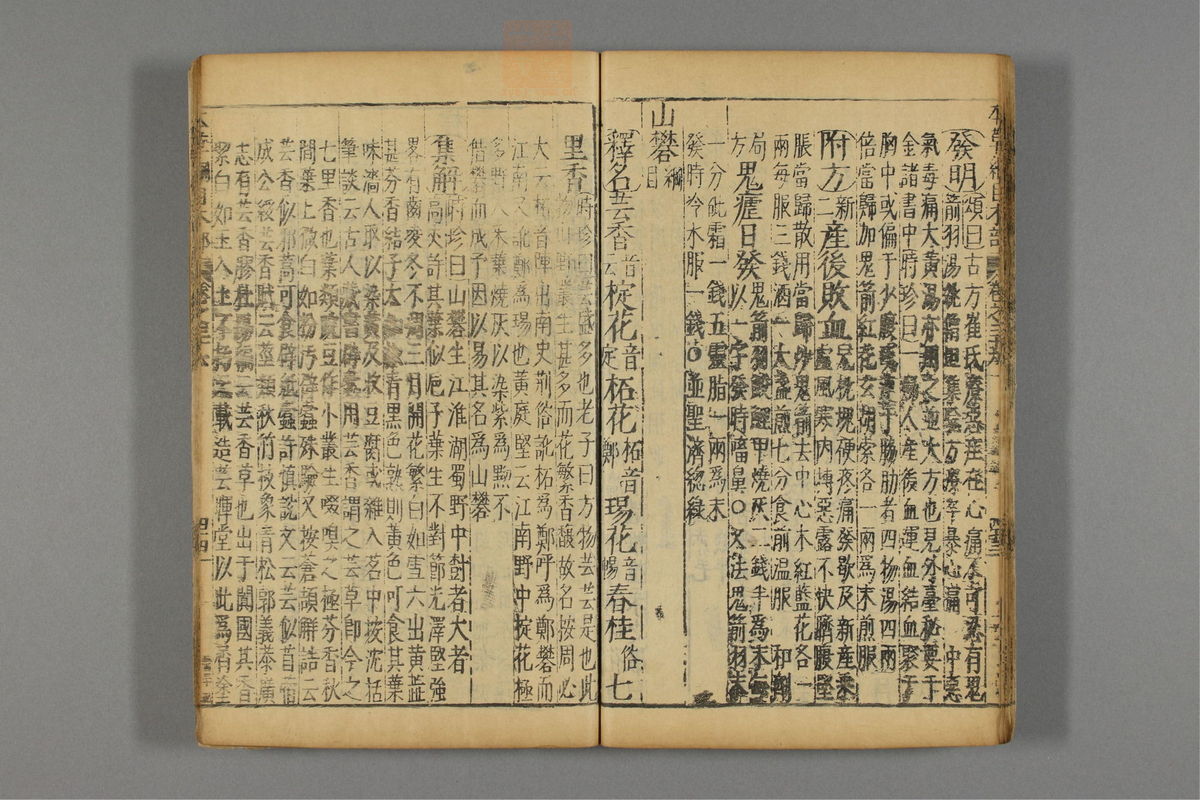 發明頌曰古方崔氏療惡疰在心痛不可忍有鬼
箭羽湯集驗方療卒暴心痛中惡
氣毒痛大黃湯亦用之並大方也見外臺秘要千
金諸書中時珍曰一婦人產後血運血結血聚于
胸中或偏于少腹或連于脇肋者四物湯四兩
倍當歸加鬼箭紅花玄胡索各一兩爲末煎服
附方新二產後敗血兒枕塊硬疼痛發歇及新產乘
虛風寒內搏惡露不快臍腹堅
脹當歸散用當歸炒鬼箭去中心木紅藍花各一
兩每服三錢酒一大盞煎七分食前溫服 和劑
局方鬼瘧日發鬼箭羽鯪鯉甲燒灰二錢半爲末每
以一字發時㗜鼻○又法鬼箭羽末
一分砒霜一錢五靈脂一兩爲末
發時冷水服一錢○並聖濟總錄
山礬綱目
釋名芸香音云椗花音定柘花柘音鄭瑒花音暢春桂俗七
里香時珍曰芸盛多也老子曰万物芸芸是也此
物山野叢生甚多而花繁香馥故名按周必
大云柘音陣出南史荊俗訛柘爲鄭呼爲鄭礬而
江南又訛鄭爲瑒也黃庭堅云江南野中椗花極
多野人采葉燒灰以染紫爲黝不
借礬而成予因以易其名爲山礬
集解時珍曰山礬生江淮湖蜀野中樹者大者
高丈許其葉似巵子葉生不對節光澤堅強
畧有齒凌冬不凋三月開花繁白如雪六出黃蕊
甚芬香結子大如椒青黑色熟則黃色可食其葉
味濇人取以染黃及收豆腐或雜入茗中按沈括
筆談云古人藏書辟蠹用芸香謂之芸草卽今之
七里香也葉類豌豆作小叢生啜嗅之極芬香秋
間葉上微白如粉汚辟蠹殊驗又按蒼頡解詁云
芸香似邪蒿可食辟紙蠹許慎說文云芸似苜蓿
成公綏芸香賦云莖類秋竹枝象青松郭義恭廣
志有芸香膠杜陽編云芸香草也出于闐國其香
潔白如玉入土不朽元載造芸暉堂以此爲屑塗